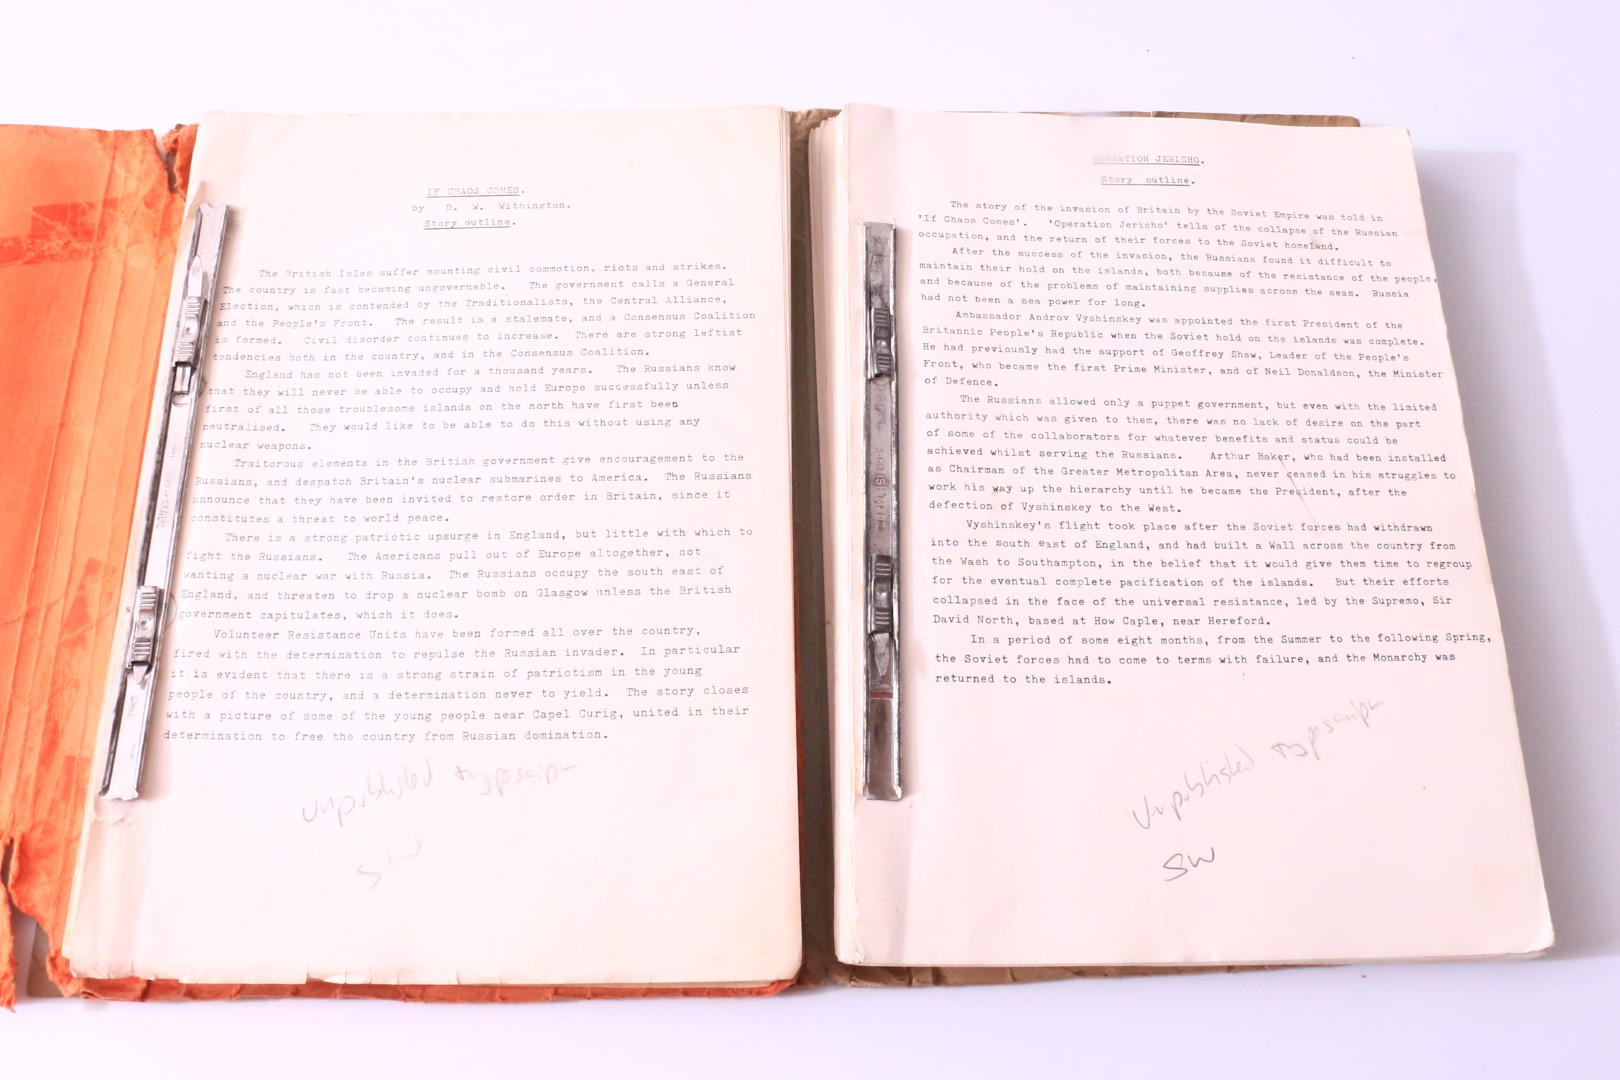 IF CHAOS COMES.
by D. W. Withington.
Story outline.
The British Isles suffer mounting civil commotion, riots and strikes.
The country is fast becoming ungovernable. The government calls a General
Election, which is contended by the Traditionalists, the Central Alliance,
and the People's Front. The result is a stalemate, and a Consensus Coalition
is formed. Civil disorder continues to increase. There are strong leftist
tendencies both in the country, and in the Consensus Coalition.
England has not been invaded for a thousand years. The Russians know
that they will never be able to occupy and hold Europe successfully unless
first of all those troublesome islands on the north have first been
neutralised. They would like to be able to do this without using any
nuclear weapons.
Traitorous elements in the British government give encouragement to the
Russians, and despatch Britain's nuclear submarines to America. The Russians
announce that they have been invited to restore order in Britain, since it
constitutes a threat to world peace.
There is a strong patriotic upsurge in England, but little with which to
fight the Russians. The Americans pull out of Europe altogether, not
wanting a nuclear war with Russia. The Russians occupy the south east of
England, and threaten to drop a nuclear bomb on Glasgow unless the British
government capitulates, which it does.
Volunteer Resistance Units have been formed all over the country,
fired with the determination to repulse the Russian invader. In particular
it is evident that there is a strong strain of patriotism in the young
people of the country, and a determination never to yield. The story closes
with a picture of some of the young people near Capel Curig, united in their
determination to free the country from Russian domination.
Unpublished typscript
SW
OPERATION JERICHO.
Story outline.
The story of the invasion of Britain by the Soviet Empire was told in
'If Chaos Comes'. 'Operation Jericho' tells of the collapse of the Russian
occupation, and the return of their forces to the Soviet homeland.
After the success of the invasion, the Russians found it difficult to
maintain their hold on the islands, both because of the resistance of the people,
and because of the problems of maintaining supplies across the seas. Russia
had not been a sea power for long.
Ambassador Androv Vyshinskey was appointed the first President of the
Britannic People's Republic when the Soviet hold on the islands was complete.
He had previously had the support of Geoffrey Shaw, Leader of the People's
Front, who became the first Prime Minister, and of Neil Donaldson, the Minister
of Defence.
The Russians allowed only a puppet government, but even with the limited
authority which was given to them, there was no lack of desire on the part
of some of the collaborators for whatever benefits and status could be
achieved whilst serving the Russians. Arthur Baker, who had been installed
as Chairman of the Greater Metropolitan Area, never ceased in his struggles to
work his way up the hierarchy until he became the President, after the
defection of Vyshinskey to the West.
Vyshinskey's flight took place after the Soviet forces had withdrawn
into the south east of England, and had built a Wall across the country from
the Wash to Southampton, in the belief that it would give them time to regroup
for the eventual complete pacification of the islands. But their efforts
collapsed in the face of the universal resistance, led by the Supremo, Sir
David North, based at How Caple, near Hereford.
In a period of some eight months, from the Summer to the following Spring,
the Soviet forces had to come to terms with failure, and the Monarchy was
returned to the islands.
Unpublished typscript
SW